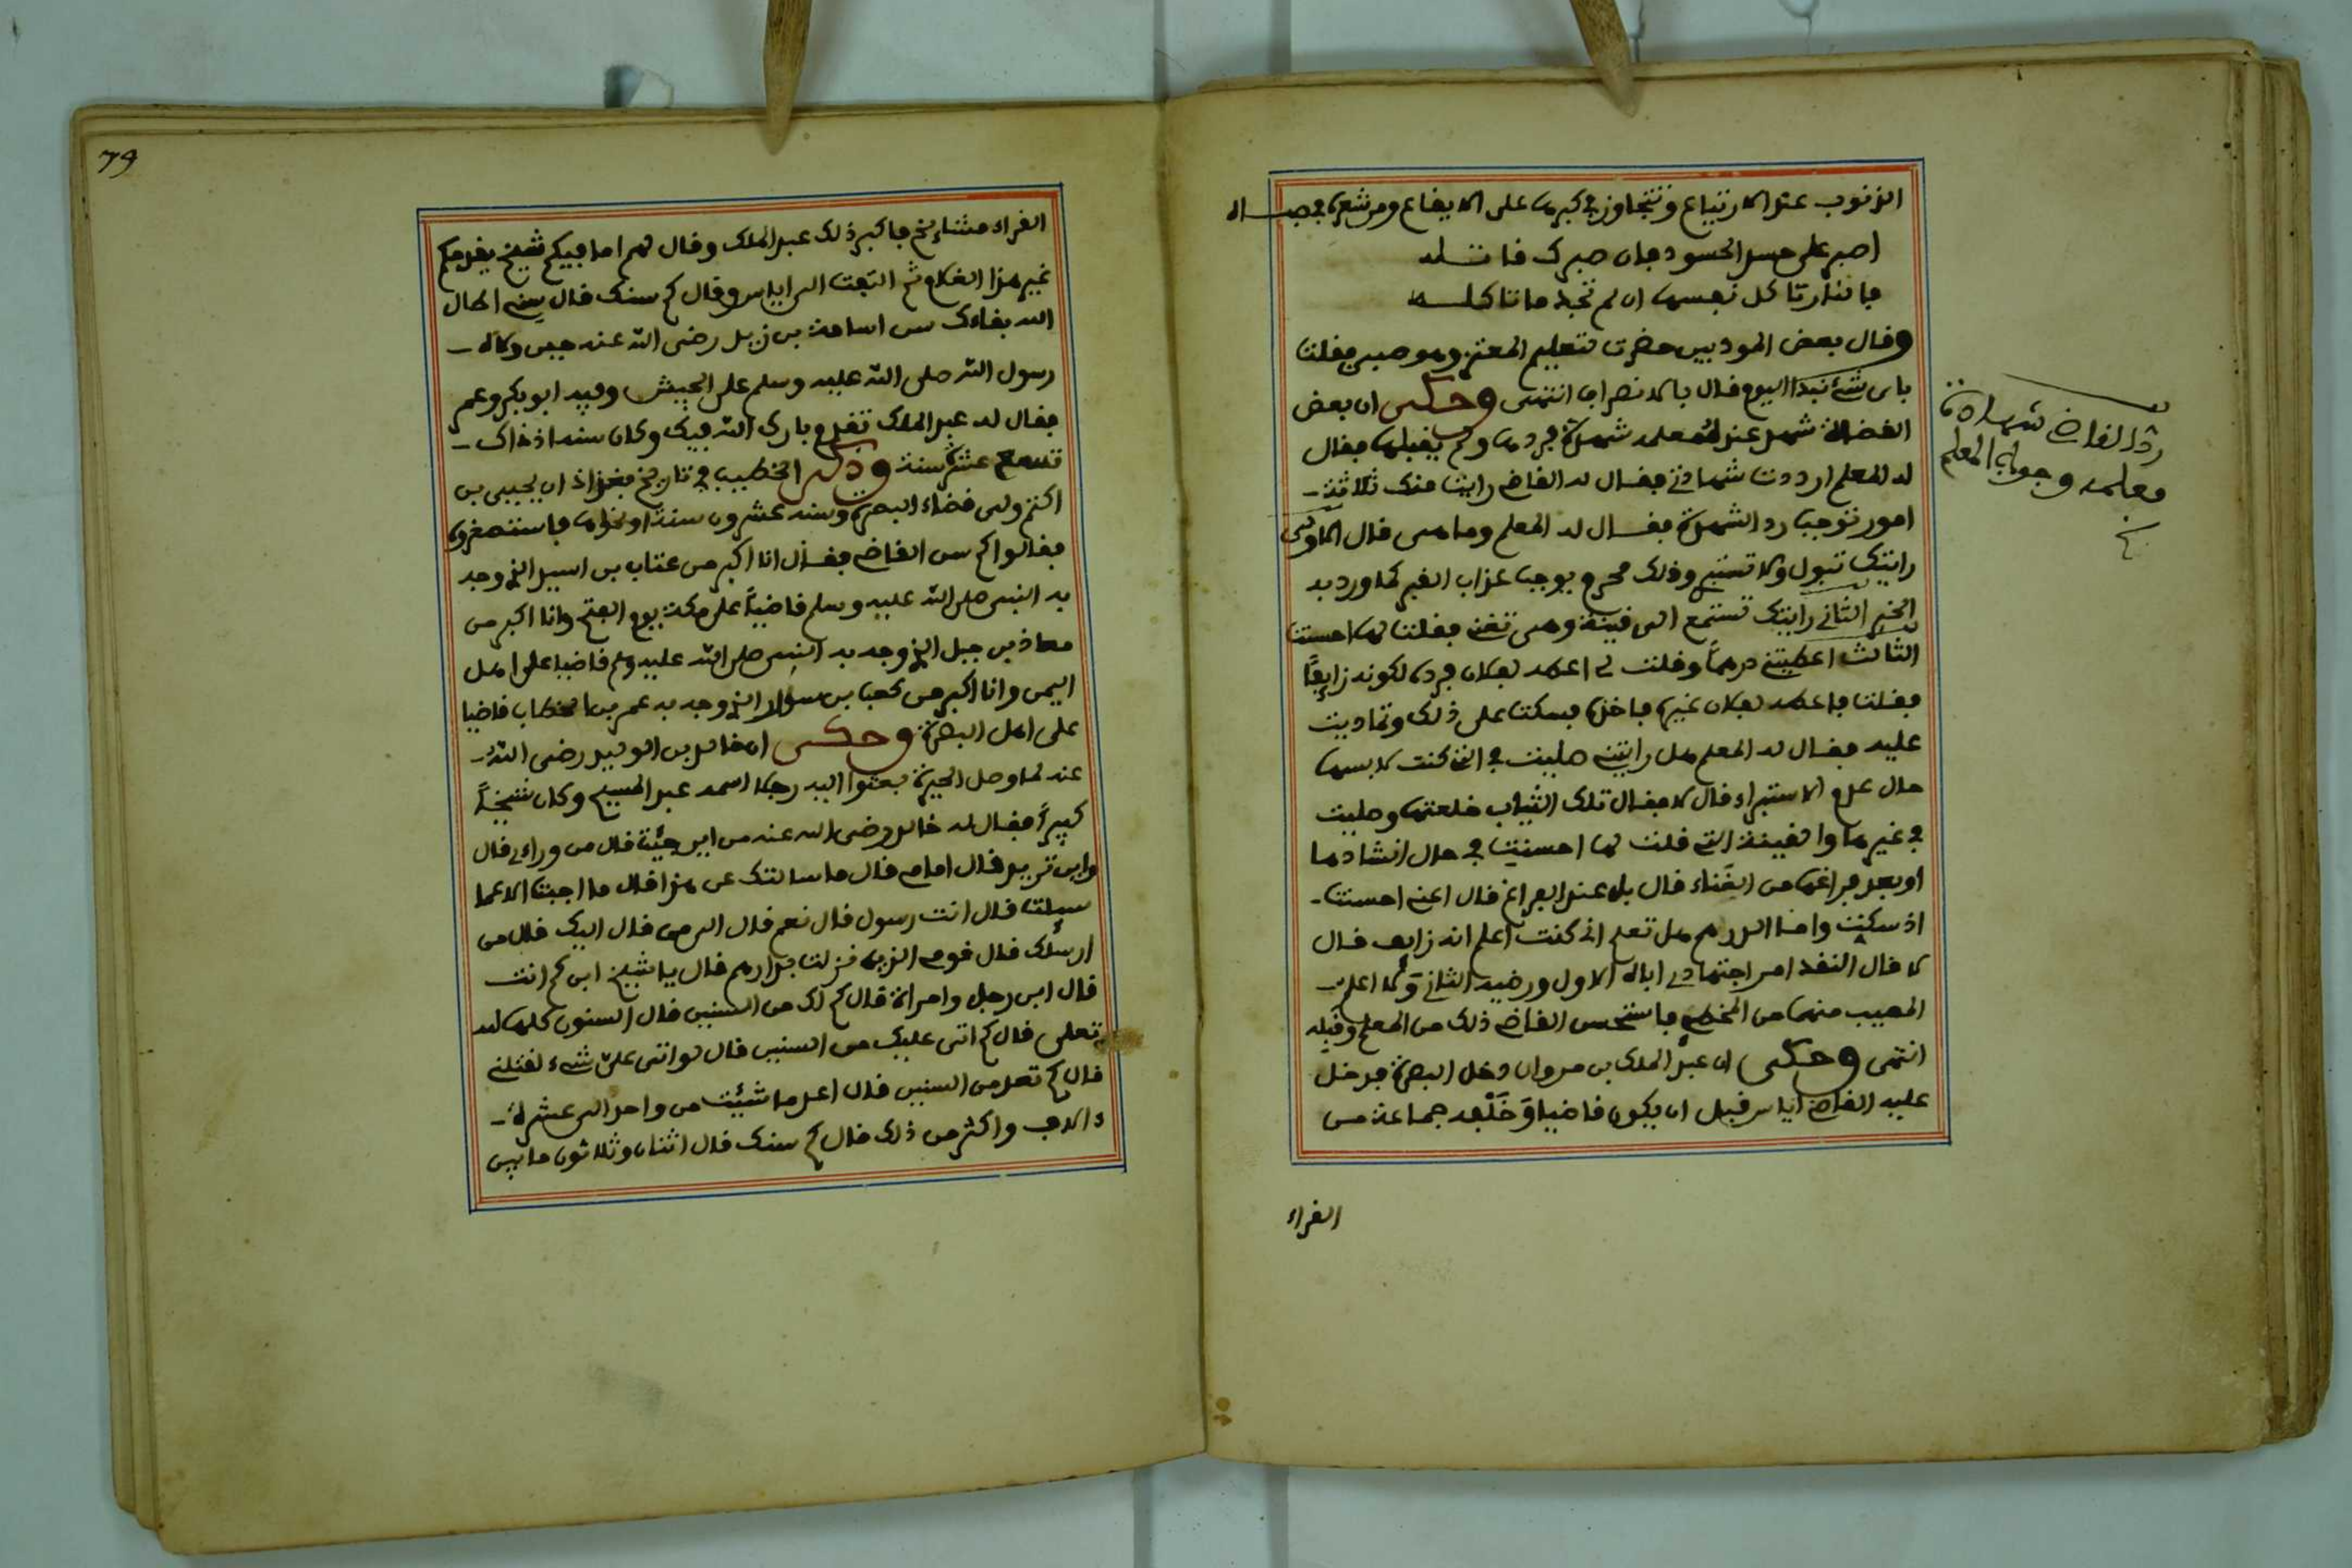 الذنوب عند الارتياع وتتجاوز في كبرها على الايفاع ومن شعره في جبــاله
اصبر على حسد الحسود فان صبرك قاتــله
فالنار تاكل نفسها ان لم تجد ما تاكلــه
وقال بعض المودبين حضرت لتعليم المعتز وهو صبي فقلت
باى شئ نبدا اليوم قال بالانصراف انتهى وحكى ان بعض
القضاة شهد عنده معلمه شهادة فردها ولم يقبلها فقال
له المعلم ارددت شهادتي فقال له القاضي رايت منك ثلاثة
امور توجب رد الشهادة فقال له المعلم وما هى قال الاولى
رايتك تبول ولا تستبر وذلك محرم يوجب عذاب القبر كما ورد به
الخبر الثاني رايتك تستمع الى قينة وهى تغنى فقلت لها احسنت
الثالث اعطيتني درهماً وقلت لى اعطه لفلان فرده لكونه زايفاً
فقلت فاعطه لفلان غيره فاخذه فسكت على ذلك وتماديت
عليه فقال له المعلم هل رايتني صليت في التي كنت لابسها
حال عدم الاستبراء قال لا فقال تلك الثياب خلعتها وصليت
في غيرها والقينة التي قلت لها احسنت في حال انشادها
او بعد فراغها من الغناء قال بل عند الفراغ قال اعني احسنت
اذ سكتت واما الدرهم هل تعلم انى كنت اعلم انه زايف قال
لا قال النقد امر اجتهادي اباه الاول ورضيه الثاني ولا اعلم
المصيب منهما من المخطي فاستحسن القاضي ذلك من المعلم وقبله
انتهى وحكى ان عبد الملك بن مروان دخل البصرة فدخل
عليه القاضي اياس قبل ان يكون قاضيا وخلفه جماعة من
القراء
رد القاضي شهادة
معلمه وجواب المعلم
79
القراء مشايخ فاكبر ذلك عبد الملك وقال لهم اما فيكم شيخ يقدمكم
غير هذا الغلام ثم التفت الى اياس وقال كم سنك قال سني اطال
الله بقاءك سن اسامة بن زيد رضى الله عنه حين ولاه
رسول الله صلى الله عليه وسلم على الجيش وفيه ابو بكر وعمر
فقال له عبد الملك تقدم بارك الله فيك وكان سنه اذ ذاك
تسع عشر سنة وذكر الخطيب في تاريخ بغداذ ان يحيى بن
اكثم ولى قضاء البصرة وسنه عشرون سنة او نحوها فاستصغروه
فقالوا كم سن القاضي فقال انا اكبر من عتاب بن اسيد الذي وجه
به النبى صلى الله عليه وسلم قاضياً على مكة يوم الفتح وانا اكبر من
معاذ بن جبل الذي وجه به النبى صلى الله عليه ولم قاضيا على اهل
اليمن وانا اكبر من كعب بن سور الذي وجه به عمر بن الخطاب قاضيا
على اهل البصرة وحكى ان خالد بن الوليد رضى الله
عنه لما وصل الحيرة بعثوا اليه رجلا اسمه عبد المسيح وكان شيخاً
كبيراً فقال له خالد رضى الله عنه من اين جئت قال من وراءى قال
واين تريد قال امامى قال ما سالتك عن هذا قال ما اجبت الا عما
سيلت قال انت رسول قال نعم قال الى من قال اليك قال من
ارسلك قال قومى الذين نزلت بدارهم قال يا شيخ ابن كم انت
قال ابن رجل وامراة قال كم لك من السنين قال السنون كلها لله
تعلى قال كم اتى عليك من السنين قال لو اتى على شئ لقتلني
قال كم تعد من السنين قال اعد ما شئت من واحد الى عشرة
والاف واكثر من ذلك قال كم سنك قال اثنان وثلاثون ما بين